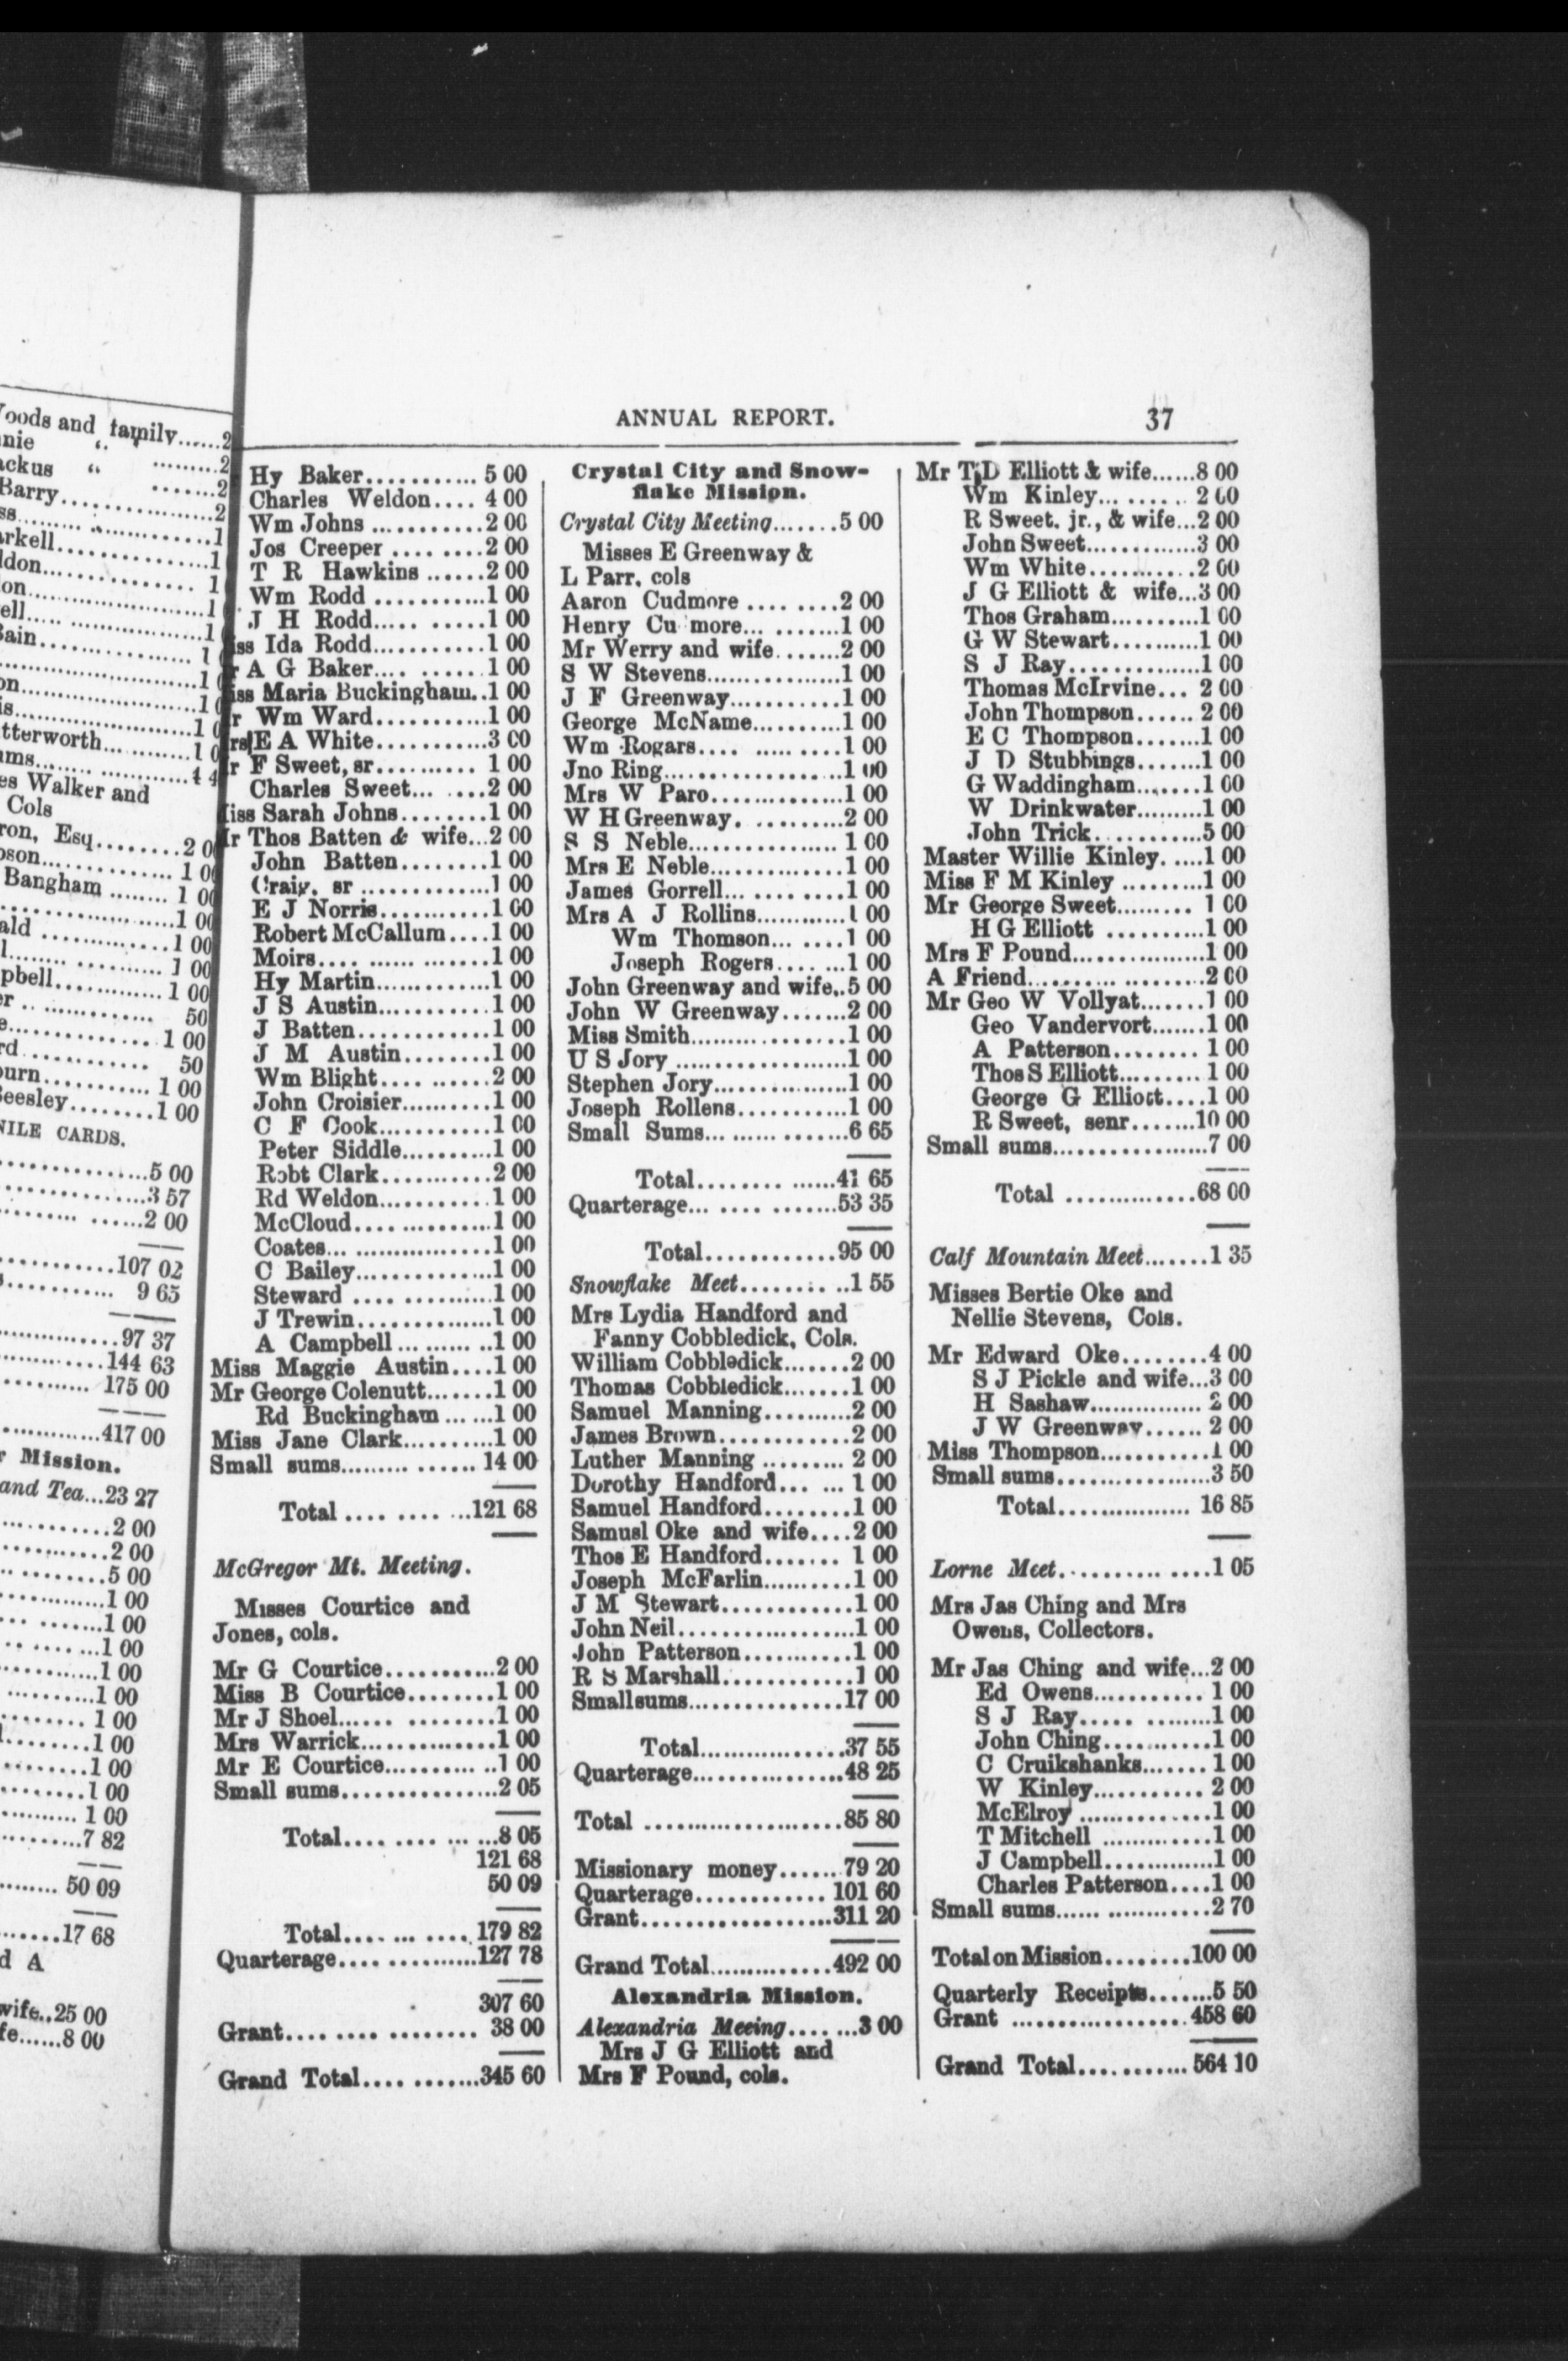 Woods and family......2
nie " "
ackus " .........2
Barry................2
arkell..............1
ldon............... 1
on......................1
ell.....................1
Bain................. 1
on......................1
is......................1
tterworth............1
ums......................4 4
es Walker and
Cols
ron, Esq........2 0
oson............... 1 0
Bangham ........ 1 00
.....................1 00
ald ...............1 00
l.................. 1 00
pbell............. 1 00
er ............... 50
e................. 1 00
rd............... 50
ourn........... 1 00
Beesley........1 00
NILE CARDS.
................5 00
................3 57
................2 00
............107 02
............ 9 65
............97 37
............144 63
............ 175 00
............417 00
r Mission.
and Tea...23 27
............2 00
............2 00
............5 00
............1 00
............1 00
............1 00
............1 00
............1 00
............1 00
............1 00
............1 00
............1 00
............1 00
............7 82
......... 50 09
.......17 68
d A
wife..25 00
fe......8 00
ANNUAL REPORT. 37
Hy Baker........... 5 00
Charles Weldon.... 4 00
Wm Johns ...........2 00
Jos Creeper ........2 00
T R Hawkins ......2 00
Wm Rodd ...........1 00
J H Rodd..... ......1 00
iss Ida Rodd...........1 00
r A G Baker.... ......1 00
iss Maria Buckingham..1 00
r Wm Ward...........1 00
rs E A White...........3 00
r F Sweet, sr.......... 1 00
Charles Sweet... ....2 00
iss Sarah Johns.........1 00
Ir Thos Batten & wife...2 00
John Batten.........1 00
Craig, sr .............1 00
E J Norris...........1 00
Robert McCallum....1 00
Moirs.... ...... .......1 00
Hy Martin.............1 00
J S Austin...........1 00
J Batten.............1 00
J M Austin.........1 00
Wm Blight.... ......2 00
John Croisier..........1 00
C F Cook...........1 00
Peter Siddle..........1 00
Robt Clark...........2 00
Rd Weldon...........1 00
McCloud.... ...........1 00
Coates... ................1 00
C Bailey...............1 00
Steward .... ..........1 00
J Trewin...............1 00
A Campbell ... ...... ..1 00
Miss Maggie Austin....1 00
Mr George Colenutt.......1 00
Rd Buckingham ... ...1 00
Miss Jane Clark..........1 00
Small sums......... ...... 14 00
Total .... .... ...121 68
McGregor Mt. Meeting.
Misses Courtice and
Jones, cols.
Mr G Courtice...........2 00
Miss B Courtice........1 00
Mr J Shoel...... .........1 00
Mrs Warrick..............1 00
Mr E Courtice.......... ..1 00
Small sums................2 05
Total.... .... ... ...8 05
121 68
50 09
Total.... ... ....179 82
Quarterage.... ..........127 78
307 60
Grant.... .... ......... 38 00
Grand Total.... .......345 60
Crystal City and Snow-
flake Mission.
Crystal City Meeting.......5 00
Misses E Greenway &
L Parr, cols
Aaron Cudmore .... .....2 00
Henry Cu more... .......1 00
Mr Werry and wife.......2 00
S W Stevens................1 00
J F Greenway............1 00
George McName..........1 00
Wm Rogars.... ..... ....1 00
Jno Ring....................1 00
Mrs W Paro..............1 00
W H Greenway. ..........2 00
S S Neble................ 1 00
Mrs E Neble..............1 00
James Gorrell... .........1 00
Mrs A J Rollins............1 00
Wm Thomson... ....1 00
Joseph Rogers.... ...1 00
John Greenway and wife..5 00
John W Greenway.......2 00
Miss Smith.................1 00
U S Jory ...................1 00
Stephen Jory...............1 00
Joseph Rollens...........1 00
Small Sums... .............6 65
Total........ ......41 65
Quarterage... .... ........53 35
Total............95 00
Snowflake Meet........ ..1 55
Mrs Lydia Handford and
Fanny Cobbledick, Cols.
William Cobbledick.......2 00
Thomas Cobbledick.......1 00
Samuel Manning..........2 00
James Brown.............2 00
Luther Manning ......... 2 00
Dorothy Handford... ... 1 00
Samuel Handford.........1 00
Samusl Oke and wife....2 00
Thos E Handford....... 1 00
Joseph McFarlin..........1 00
J M Stewart.............1 00
John Neil..................1 00
John Patterson...........1 00
R S Marshall.............1 00
Small sums................17 00
Total.................37 55
Quarterage................48 25
Total .....................85 80
Missionary money.......79 20
Quarterage............ 101 60
Grant...................311 20
Grand Total..............492 00
Alexandria Mission.
Alexandria Meeing.... ...3 00
Mrs J G Elliott and
Mrs F Pound, cols.
Mr T D Elliott & wife......8 00
Wm Kinley... ...... 2 00
R Sweet. jr., & wife...2 00
John Sweet.............3 00
Wm White............2 00
J G Elliott & wife...3 00
Thos Graham..........1 00
G W Stewart..........1 00
S J Ray..............1 00
Thomas McIrvine... 2 00
John Thompson...... 2 00
E C Thompson.......1 00
J D Stubbings.......1 00
G Waddingham.......1 00
W Drinkwater.........1 00
John Trick............5 00
Master Willie Kinley. ....1 00
Miss F M Kinley .........1 00
Mr George Sweet......... 1 00
H G Elliott ..........1 00
Mrs F Pound................1 00
A Friend.......... .........2 00
Mr Geo W Vollyat.......1 00
Geo Vandervort.......1 00
A Patterson......... 1 00
Thos S Elliott......... 1 00
George G Elliott....1 00
R Sweet, senr.......10 00
Small sums..................7 00
Total ..............68 00
Calf Mountain Meet.......1 35
Misses Bertie Oke and
Nellie Stevens, Cols.
Mr Edward Oke........4 00
S J Pickle and wife...3 00
H Sashaw............... 2 00
J W Greenway...... 2 00
Miss Thompson...........1 00
Small sums..................3 50
Total............... 16 85
Lorne Meet........... ....1 05
Mrs Jas Ching and Mrs
Owens, Collectors.
Mr Jas Ching and wife...2 00
Ed Owens........... 1 00
S J Ray..... ........1 00
John Ching............1 00
C Cruikshanks....... 1 00
W Kinley........... 2 00
McElroy ...............1 00
T Mitchell .............1 00
J Campbell.............1 00
Charles Patterson....1 00
Small sums...... ............2 70
Total on Mission.........100 00
Quarterly Receipts.......5 50
Grant ...................458 60
Grand Total........... 564 10